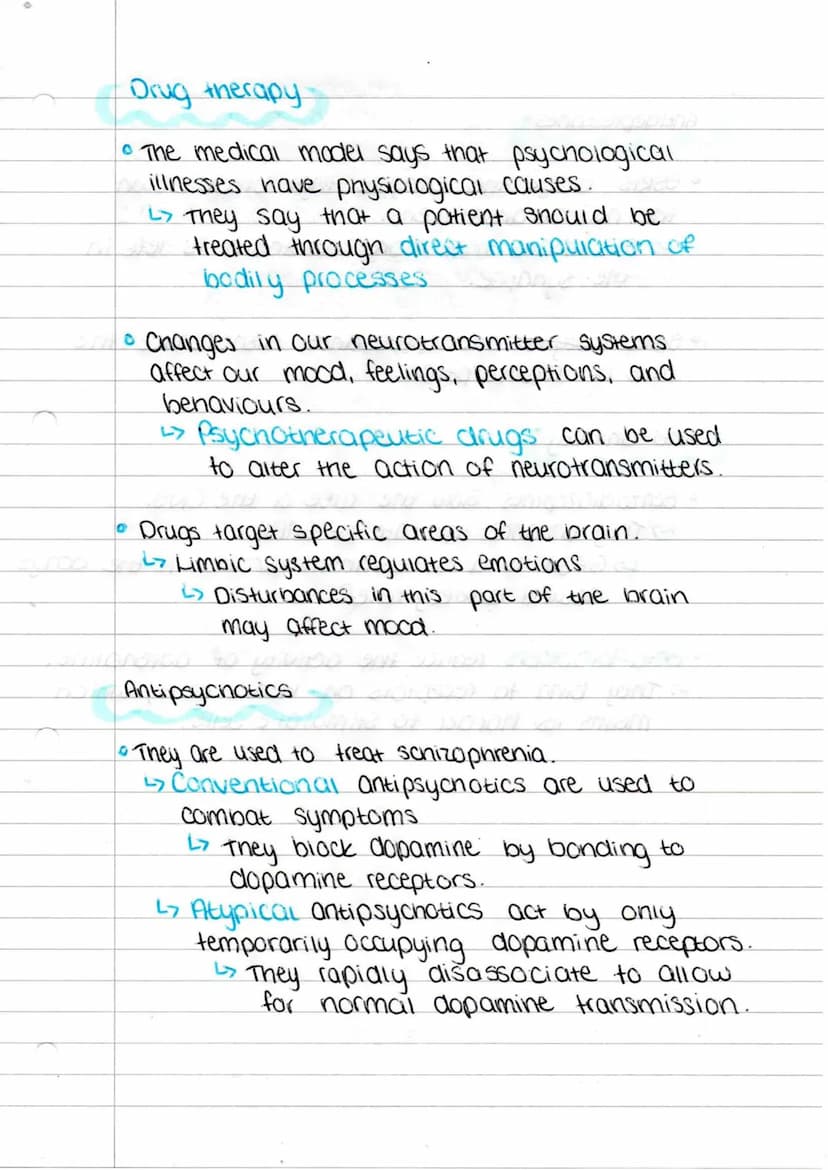 Drug therapy
• The medical model says that psychological
illnesses have physiological causes.
↳ They say that a patient should be
treated through direct manipulation of
bodily processes
• Changes in our neurotransmitter systems
affect our mood, feelings, perceptions, and
behaviours.
↳ Psychotherapeutic drugs can be used
to alter the action of neurotransmitters.
• Drugs target specific areas of the brain.
↳ Limbic system regulates emotions
↳ Disturbances in this part of the brain
may affect mood.
Antipsychotics
• They are used to treat schizophrenia.
↳ Conventional antipsychotics are used to
combat symptoms
↳ They block dopamine by bonding to
dopamine receptors.
↳ Atypical antipsychotics act by only
temporarily occupying dopamine receptors.
↳ They rapidly disassociate to allow
for normal dopamine transmission.